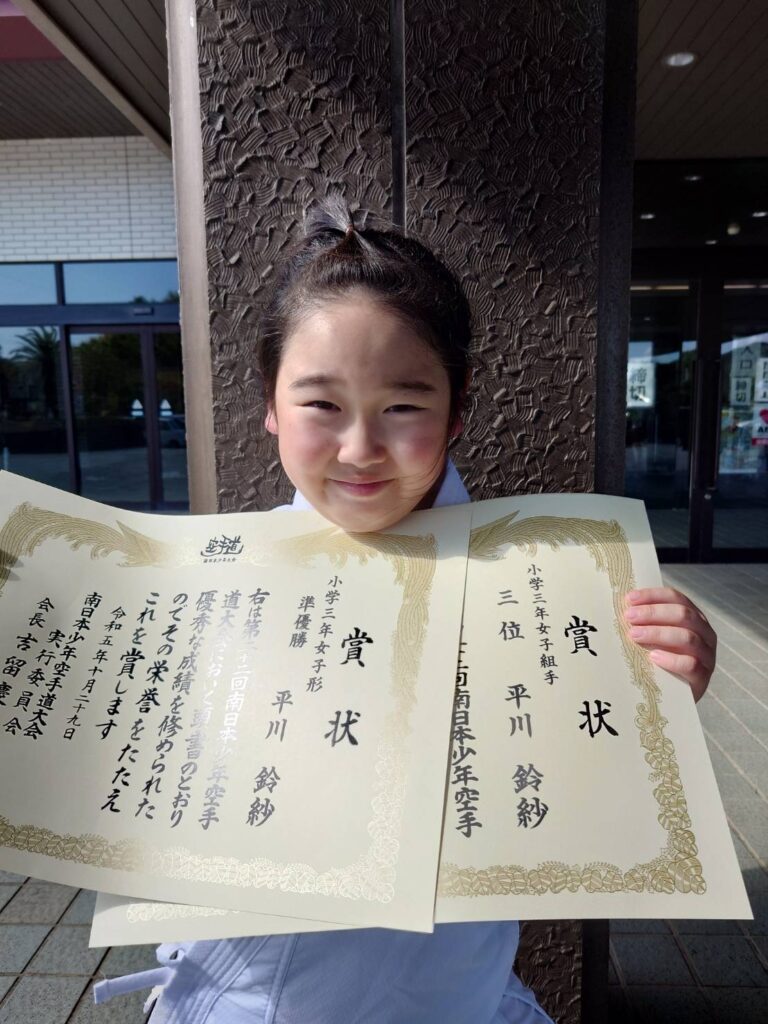 賞状
小学三年女子組手
三位 平川 鈴紗
二回南日本少年空手
空手道
賞状
小学三年女子形
準優勝
平川 鈴紗
右は第 二回南日本少年空手
道大会において頭書のとおり
優秀な成績を修められた
のでその栄誉をたたえ
これを賞します
令和五年十月二十九日
南日本少年空手道大会
実行委員会
会長 吉留
締切
入口
締切